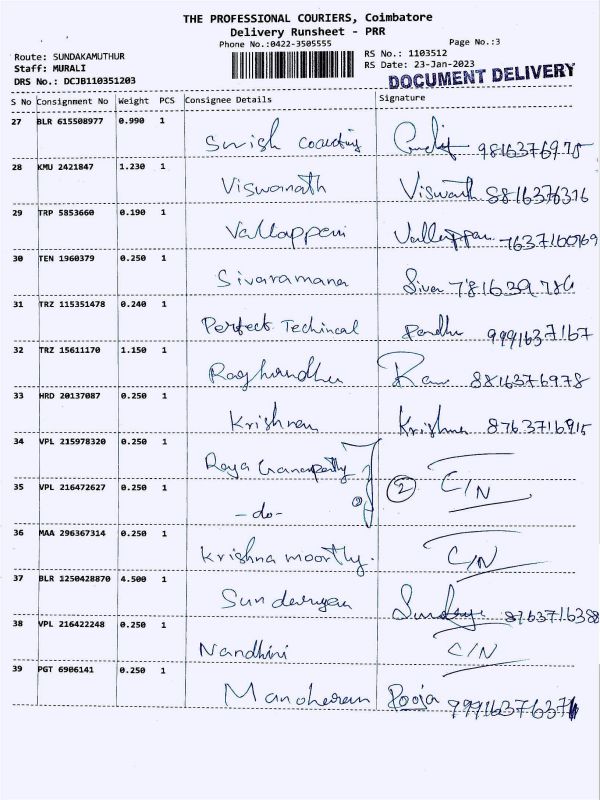 THE PROFESSIONAL COURIERS, Coimbatore
Delivery Runsheet - PRR
Phone No.:0422-3505555
Page No.:3
Route: SUNDAKAMUTHUR
RS No.: 1103512
Staff: MURALI
RS Date: 23-Jan-2023
DRS No.: DCJB110351203
DOCUMENT DELIVERY
S No Consignment No Weight PCS Consignee Details Signature
27 BLR 615508977 0.990 1 Swish coacting 9816376975
28 KMU 2421847 1.230 1 Viswanath Viswanth 8816376316
29 TRP 5853660 0.190 1 Vallappan Vallappan 7637160769
30 TEN 1960379 0.250 1 Sivaramana Siva 781639786
31 TRZ 115351478 0.240 1 Perfect Techincal 9991637167
32 TRZ 15611170 1.150 1 Raghandhu 8816376978
33 HRD 20137087 0.250 1 Krishnan Krishna 8763716915
34 VPL 215978320 0.250 1 Raja Ganapathy
35 VPL 216472627 0.250 1 -do- 2 C/N
36 MAA 296367314 0.250 1 Krishna moorthy. C/N
37 BLR 1250428870 4.500 1 8763716388
38 VPL 216422248 0.250 1 Nandhini C/N
39 PGT 6906141 0.250 1 Manoharan Pooja